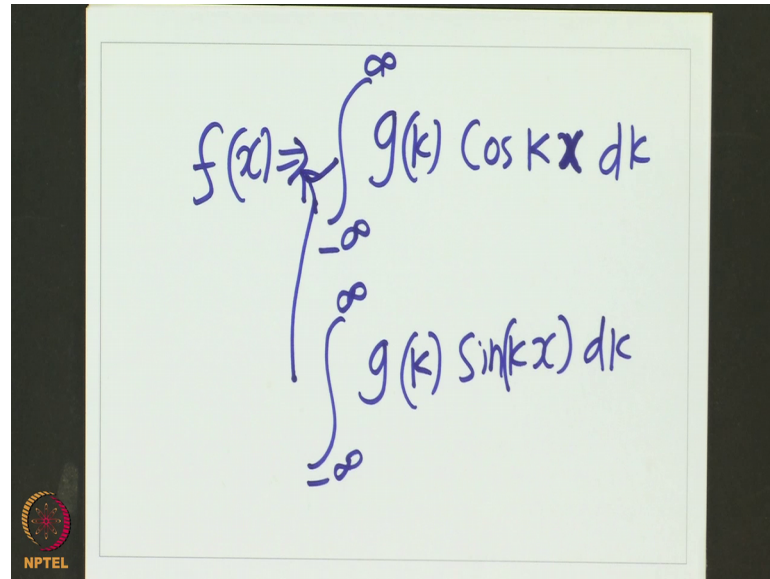 f(x) = ∫_{-∞}^{∞} g(k) Cos kx dk
∫_{-∞}^{∞} g(k) Sin(kx) dk
NPTEL